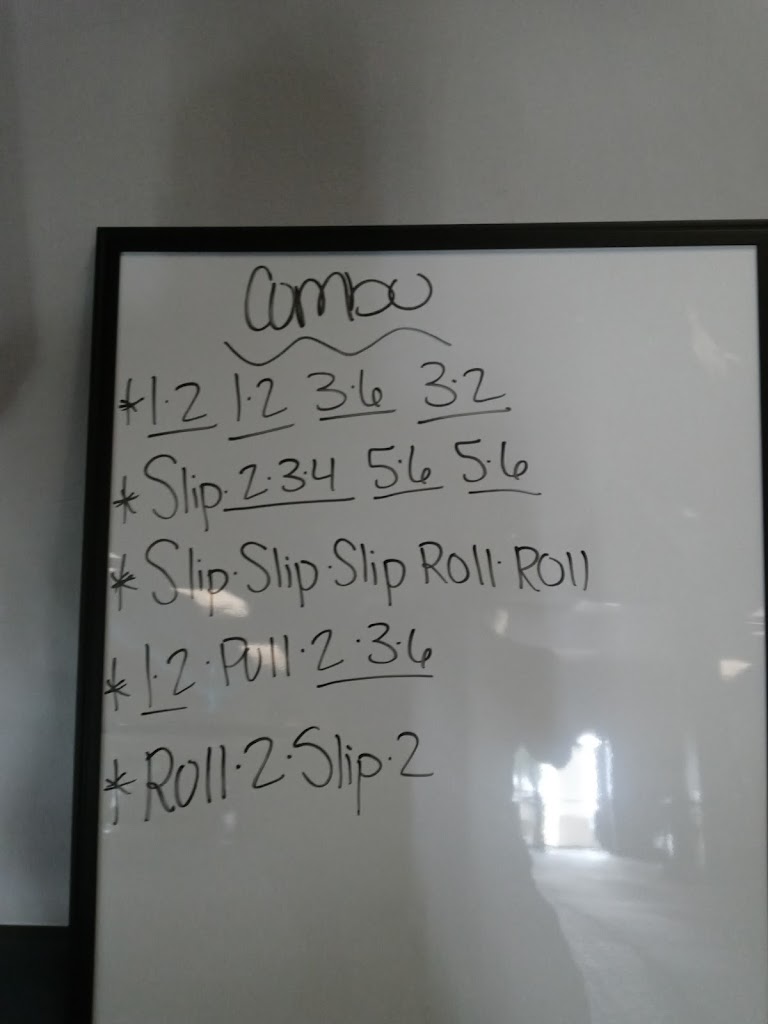 Combo
*1·2 1·2 3·6 3·2
*Slip·2·3·4 5·6 5·6
*Slip·Slip·Slip Roll·Roll
*1·2·Pull·2·3·6
*Roll·2·Slip·2